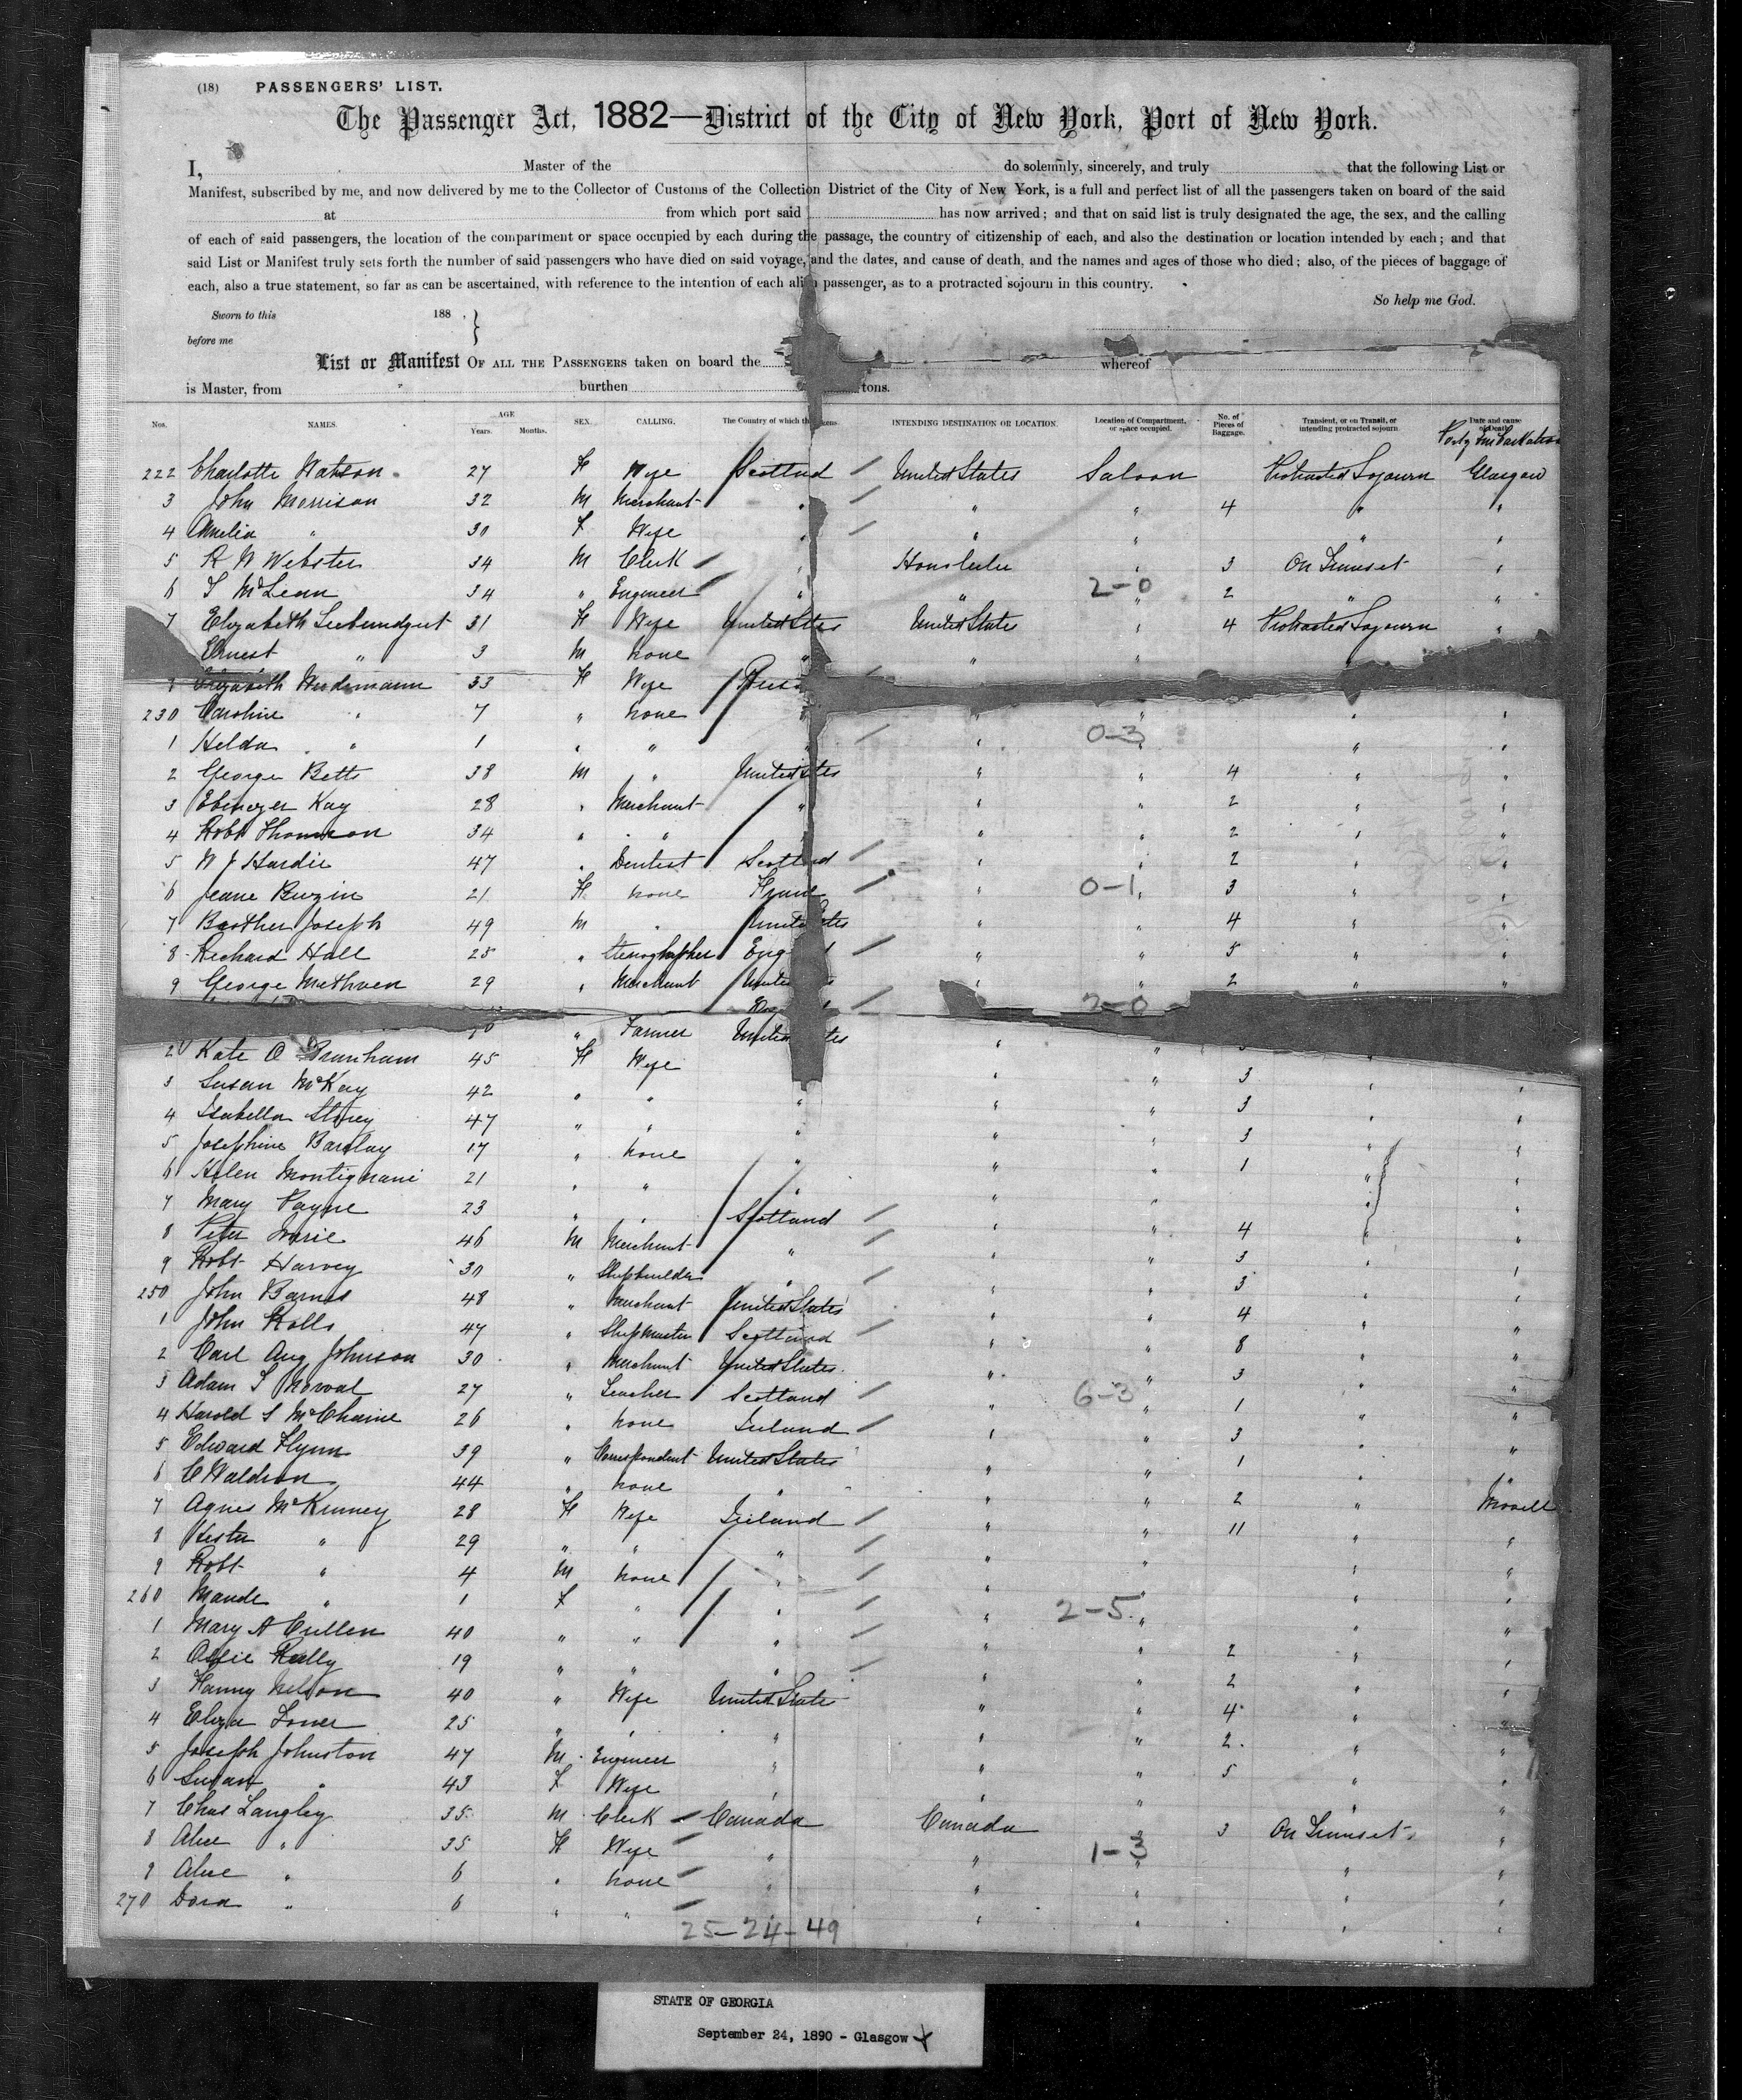 (18) PASSENGERS' LIST.
The Passenger Act, 1882—District of the City of New York, Port of New York.
I, Master of the do solemnly, sincerely, and truly that the following List or
Manifest, subscribed by me, and now delivered by me to the Collector of Customs of the Collection District of the City of New York, is a full and perfect list of all the passengers taken on board of the said
at from which port said has now arrived; and that on said list is truly designated the age, the sex, and the calling
of each of said passengers, the location of the compartment or space occupied by each during the passage, the country of citizenship of each, and also the destination or location intended by each; and that
said List or Manifest truly sets forth the number of said passengers who have died on said voyage, and the dates, and cause of death, and the names and ages of those who died; also, of the pieces of baggage of
each, also a true statement, so far as can be ascertained, with reference to the intention of each alien passenger, as to a protracted sojourn in this country.
So help me God.
Sworn to this 188 ,
before me
List or Manifest OF ALL THE PASSENGERS taken on board the whereof
is Master, from burthen tons.
Nos. NAMES. AGE Years. Months. SEX. CALLING. The Country of which th INTENDING DESTINATION OR LOCATION. Location of Compartment, or space occupied. No. of Pieces of Baggage. Transient, or on Transit, or intending protracted sojourn. Date and cause of Death.
222 Charlotte Watson 27 F Wife Scotland United States Saloon Protracted Sojourn Glasgow
3 John Morrison 32 M Merchant " " " 4 " "
4 Amelia " 30 F Wife " " " " "
5 R W Webster 34 M Clerk " Honolulu " 3 On Transit "
6 McLean 34 " Engineer " " 2-0 " 2 " "
7 Elizabeth 31 F Wife United States United States " 4 Protracted Sojourn "
Ernest " 3 M none " " "
9 Elizabeth 33 F Wife
230 Caroline " 7 " none " " " " "
1 Helda " 1 " " " " 0-3 " "
2 George Betts 38 M " United States " " 4 " "
3 Ebenezer Kay 28 " Merchant " " " 2 " "
4 Robt Thomson 34 " " " " 2 " "
5 W J Hardie 47 " Dentist Scotland " " 2 " "
6 Jeane 21 F none " 0-1 " 3 " "
7 Brother Joseph 49 M " United States " " 4 " "
8 Richard Hall 25 " Stenographer Eng " " 5 " "
9 George Methven 29 " Merchant United " " 2 " "
2-0
" Farmer United States "
2 Kate O 45 F Wife " "
3 Susan McKay 42 " " " " " 3 " "
4 Isabella Storey 47 " " " " " 3 " "
5 Josephine Barclay 17 " none " " " 3 " "
6 Helen Montignani 21 " " " " " 1 " "
7 Mary Payne 23 " " Scotland " " " "
8 Peter 46 M Merchant " " " 4 " "
9 Robt Harvey 30 " Shipbuilder " " " 3 " "
250 John Barnes 48 " Merchant United States " " 3 " "
1 John Rolls 47 " Shipmaster Scotland " " 4 " "
2 Carl Aug Johnson 30 " Merchant United States " " 8 " "
3 Adam S Norval 27 " Teacher Scotland " 6-3 " 3 " "
4 Harold S 26 " none Ireland " " 1 " "
5 Edward Flynn 39 " Correspondent United States " " 3 " "
6 C Waldron 44 " none " " " 1 " "
7 Agnes McKinney 28 F Wife Ireland " " 2 " Moville
8 Hester " 29 " " " " " 11 " "
9 Robt " 4 M none " " " " "
260 Maude " 1 F " " " 2-5 " " "
1 Mary A Cullen 40 " " " " " " "
2 19 " " " " " 2 " "
3 Fanny Nelson 40 " Wife United States " " 2 " "
4 Eliza 25 " " " " " 4 " "
5 Joseph Johnston 47 M Engineer " " " 2 " "
6 Susan " 43 F Wife " " " 5 " "
7 Chas Langley 35 M Clerk Canada Canada " 3 On Transit "
8 Alice " 35 F Wife " " 1-3 " " "
9 Alice " 6 " none " " " " "
270 Dora " 6 " " " " " " "
25-24-49
STATE OF GEORGIA
September 24, 1890 - Glasgow